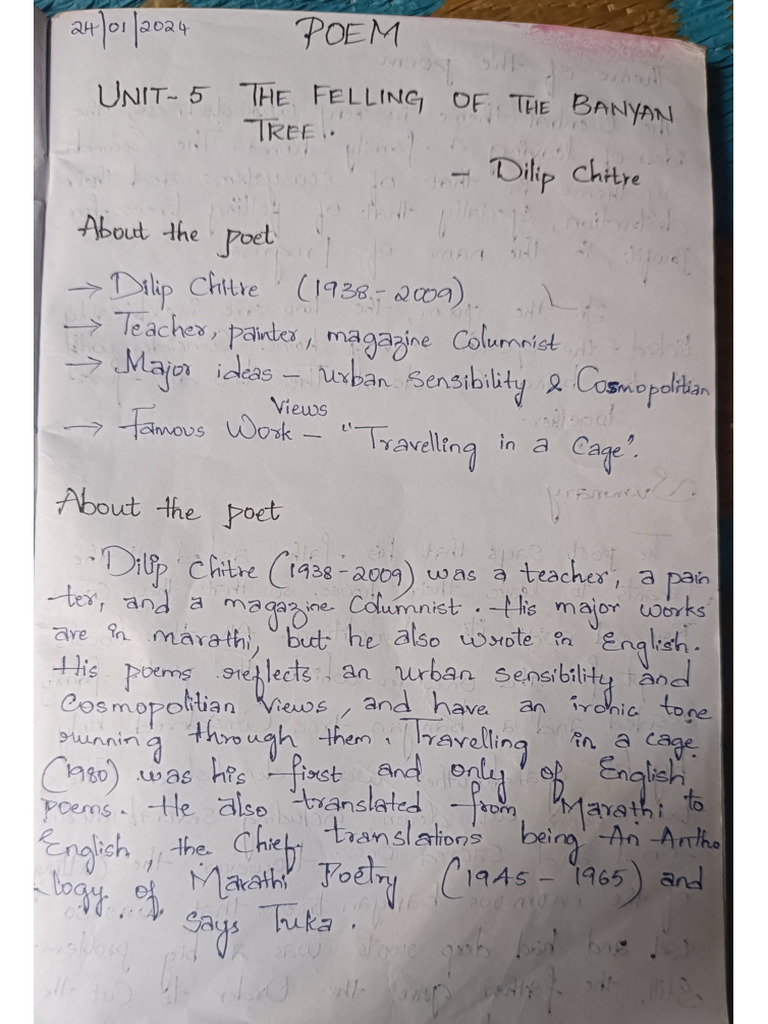 24/01/2024
POEM
UNIT-5 THE FELLING OF THE BANYAN
TREE.
- Dilip Chitre
About the poet
→ Dilip Chitre (1938-2009)
→ Teacher, painter, magazine Columnist
→ Major ideas - urban Sensibility & Cosmopolitian
Views
→ Famous Work - "Travelling in a Cage".
About the poet
Dilip Chitre (1938-2009) was a teacher, a pain
ter, and a magazine Columnist. His major works
are in marathi, but he also wrote in English.
His poems reflects an urban Sensibility and
Cosmopolitian Views, and have an ironic tone
running through them. Travelling in a cage
(1980) was his first and only of English
poems. He also translated from Marathi to
English, the Chief translations being An Antho
logy of Marathi Poetry (1945-1965) and
Says Tuka.